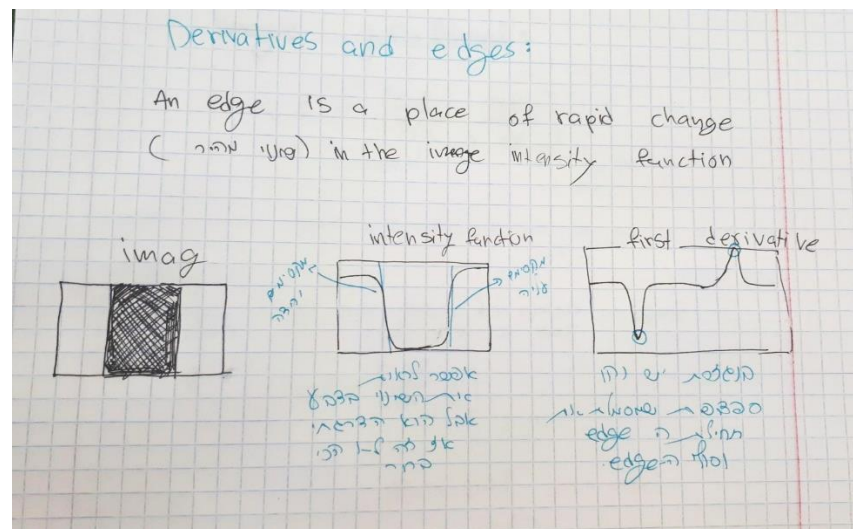 Derivatives and edges:
An edge is a place of rapid change
( שינוי מהיר) in the image intensity function
imag
intensity function
first derivative
מקסימום
ירידה
מקסימום
עליה
אפשר לראות
את השינוי בצבע
אבל הוא הדרגתי
אז זה לא הכי
ברור
בנגזרת יש
שמסמלת את
תחילת ה edge
וסוף ה-edge